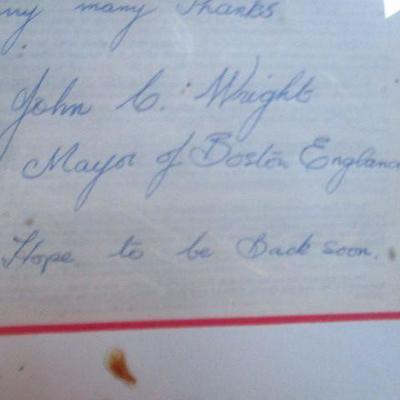 many Thanks
John C. Wright
Mayor of Boston England
Hope to be Back soon.